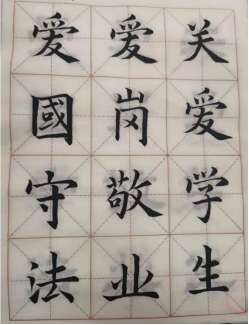 爱國守法
爱岗敬业
关爱学生